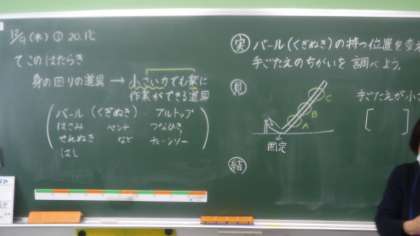 てこのはたらき
身の回りの道具 → 小さい力でも楽に
作業ができる道具
バール(くぎぬき) プルトップ
はさみ ペンチ つなひき
せんぬき など チェーンソー
はし
実 バール(くぎぬき)の持つ位置を変え
手ごたえのちがいを調べよう。
手ごたえが小
C
B
A
固定
結